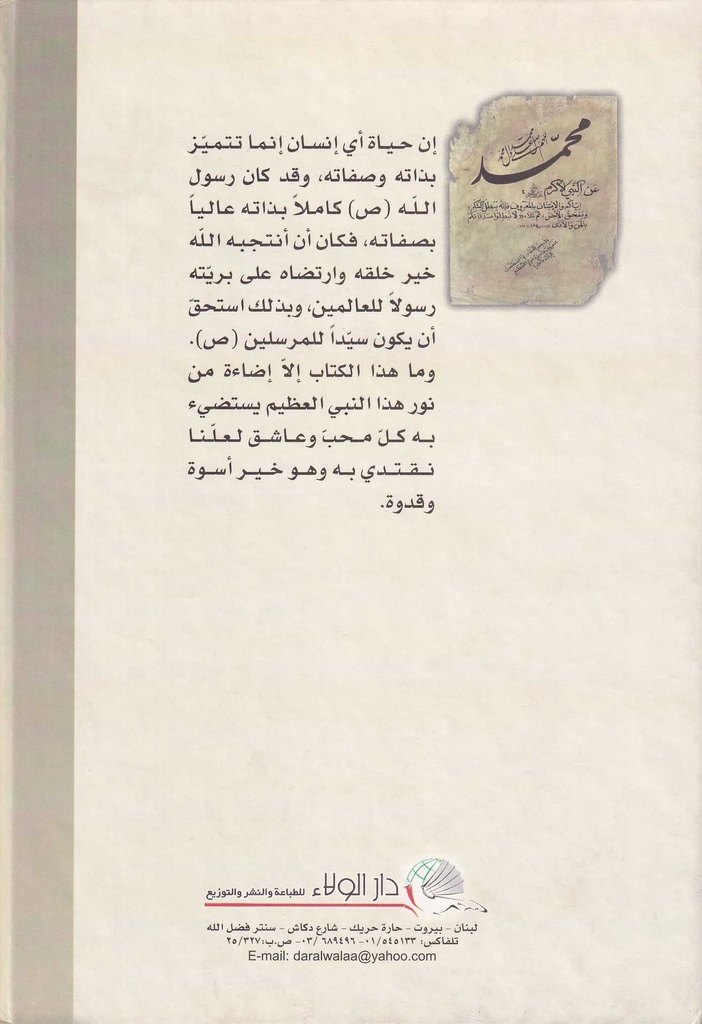 محمد
عن النبي الأكرم
إن حياة أي إنسان إنما تتميّز
بذاته وصفاته، وقد كان رسول
اللّه (ص) كاملاً بذاته عالياً
بصفاته، فكان أن أنتجبه اللّه
خير خلقه وارتضاه على بريّته
رسولاً للعالمين، وبذلك استحقّ
أن يكون سيّداً للمرسلين (ص).
وما هذا الكتاب إلاّ إضاءة من
نور هذا النبي العظيم يستضيء
به كلّ محبّ وعاشق لعلّنا
نقتدي به وهو خير أسوة
وقدوة.
دار الولاء للطباعة والنشر والتوزيع
لبنان - بيروت - حارة حريك - شارع دكاش - سنتر فضل الله
تلفاكس: ٠١/٥٤٥١٣٣ - ٠٣/٦٨٩٤٩٦ - ص.ب: ٢٥/٣٢٧
E-mail: daralwalaa@yahoo.com